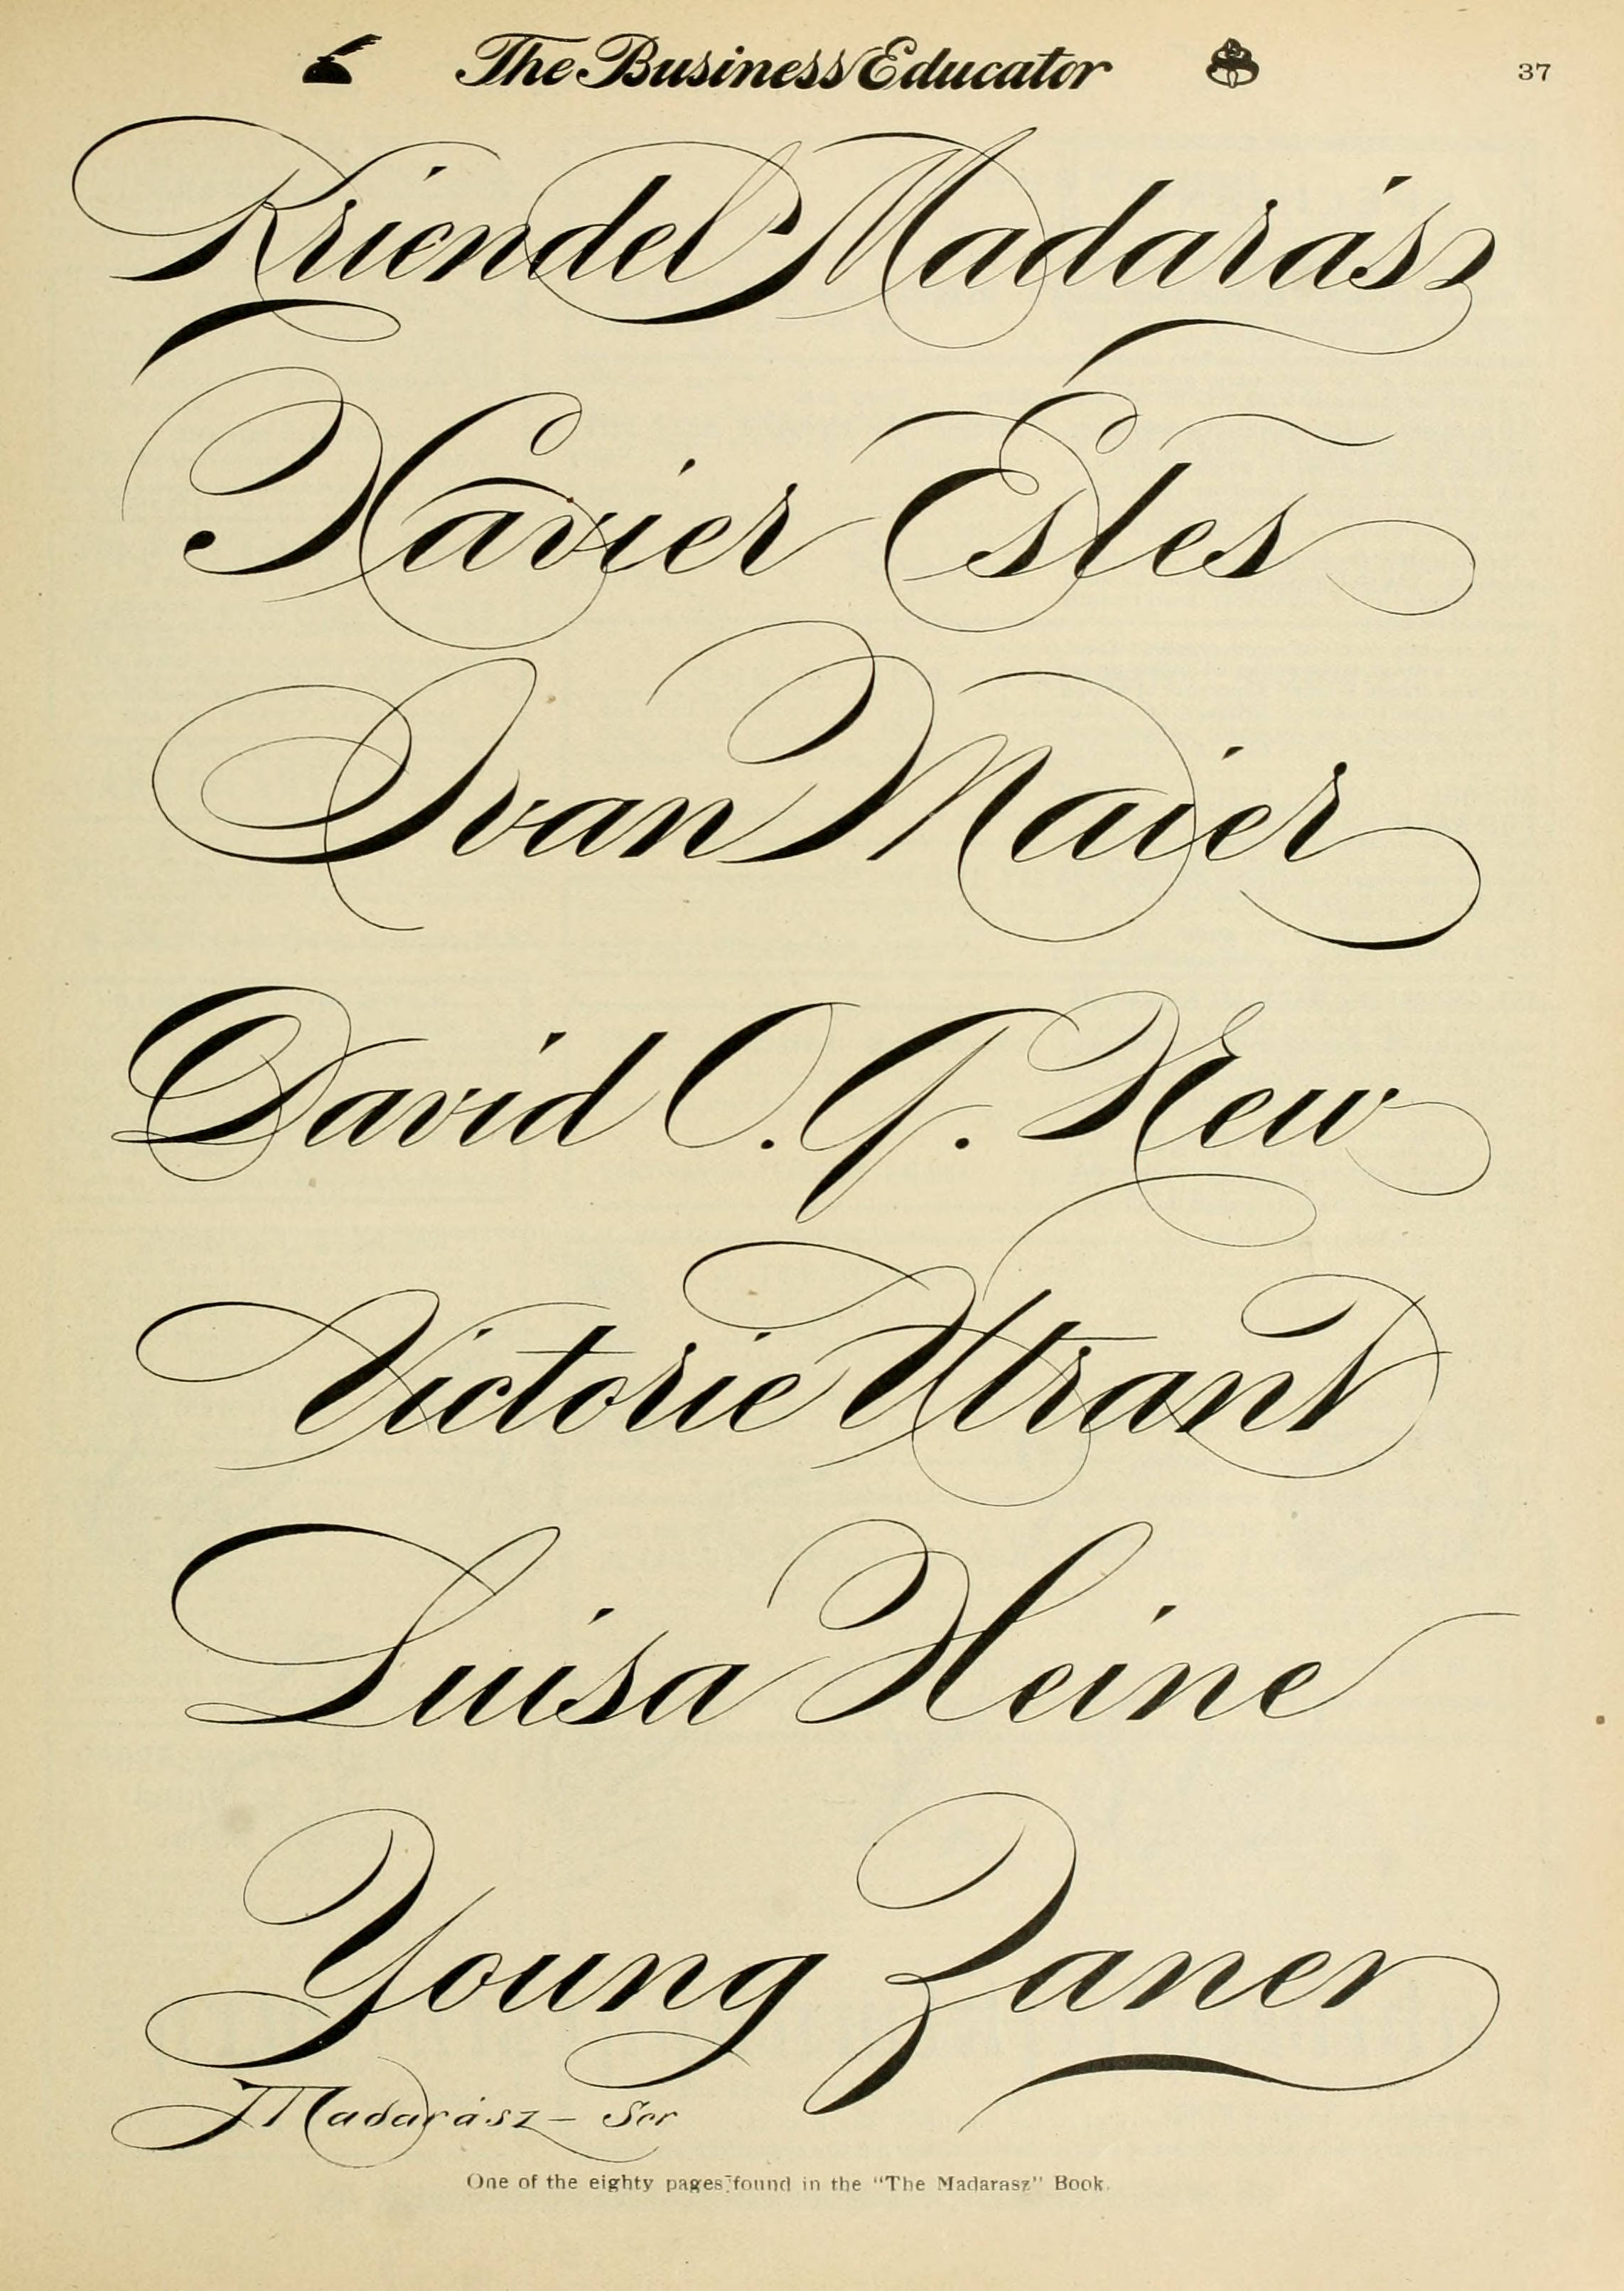 The Business Educator 37
Kriendel Madarász
Xavier Estes
Ivan Maier
David O. Q. New
Victorie Utrant
Luisa Heine
Young Zaner
Madarász – Scr
One of the eighty pages found in the "The Madarasz" Book.